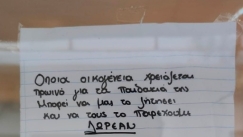 Οποια οικογένεια χρειάζεται
πρωινό για τα παιδάκια της
μπορεί να μας το ζητήσει
και να τους το παρέχουμε
ΔΩΡΕΑΝ